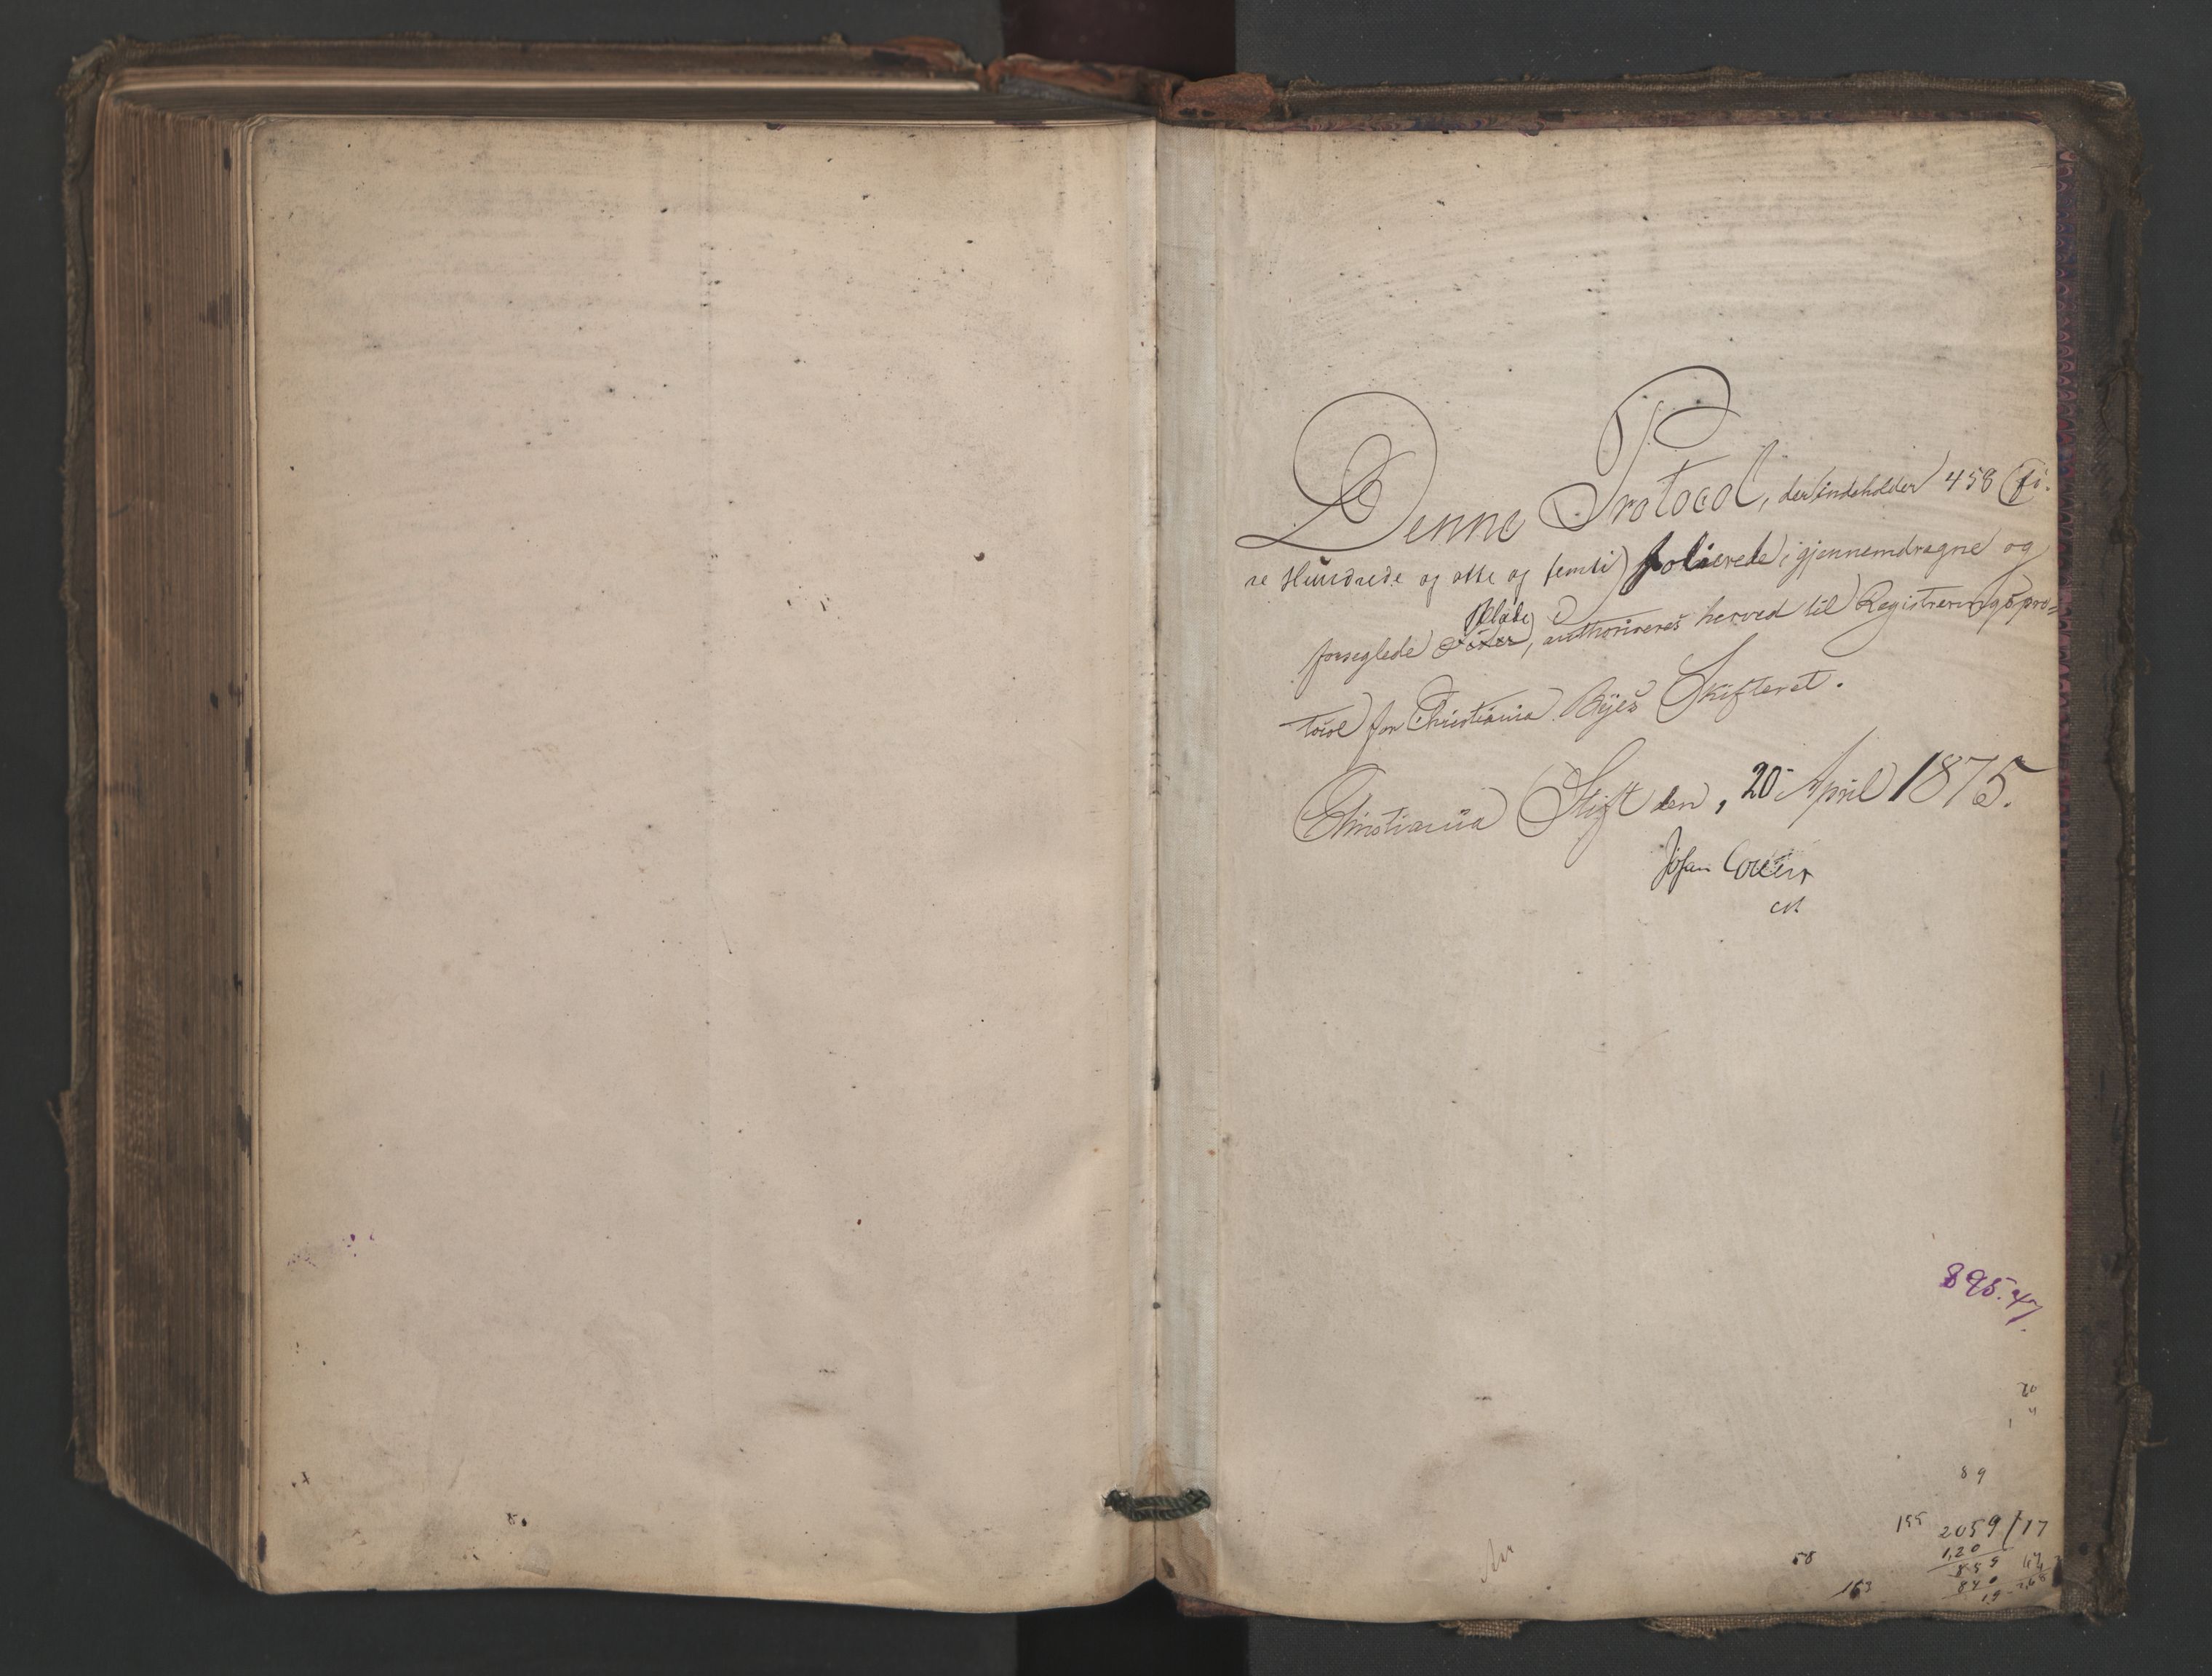 Denne Protocol, der indeholder 458 (fi-
re Hundrede og otte og femti) folierede, igjennemdragne og
Blade
forseglede Sider, authoriseres herved til Registreringspro=
tocol for Christiania Byes Skifteret.
Christiania Stift den, 20 April 1875.
Johan Collett
895.47
20
89
155 2059/17
1,20
58 859
163 840
19